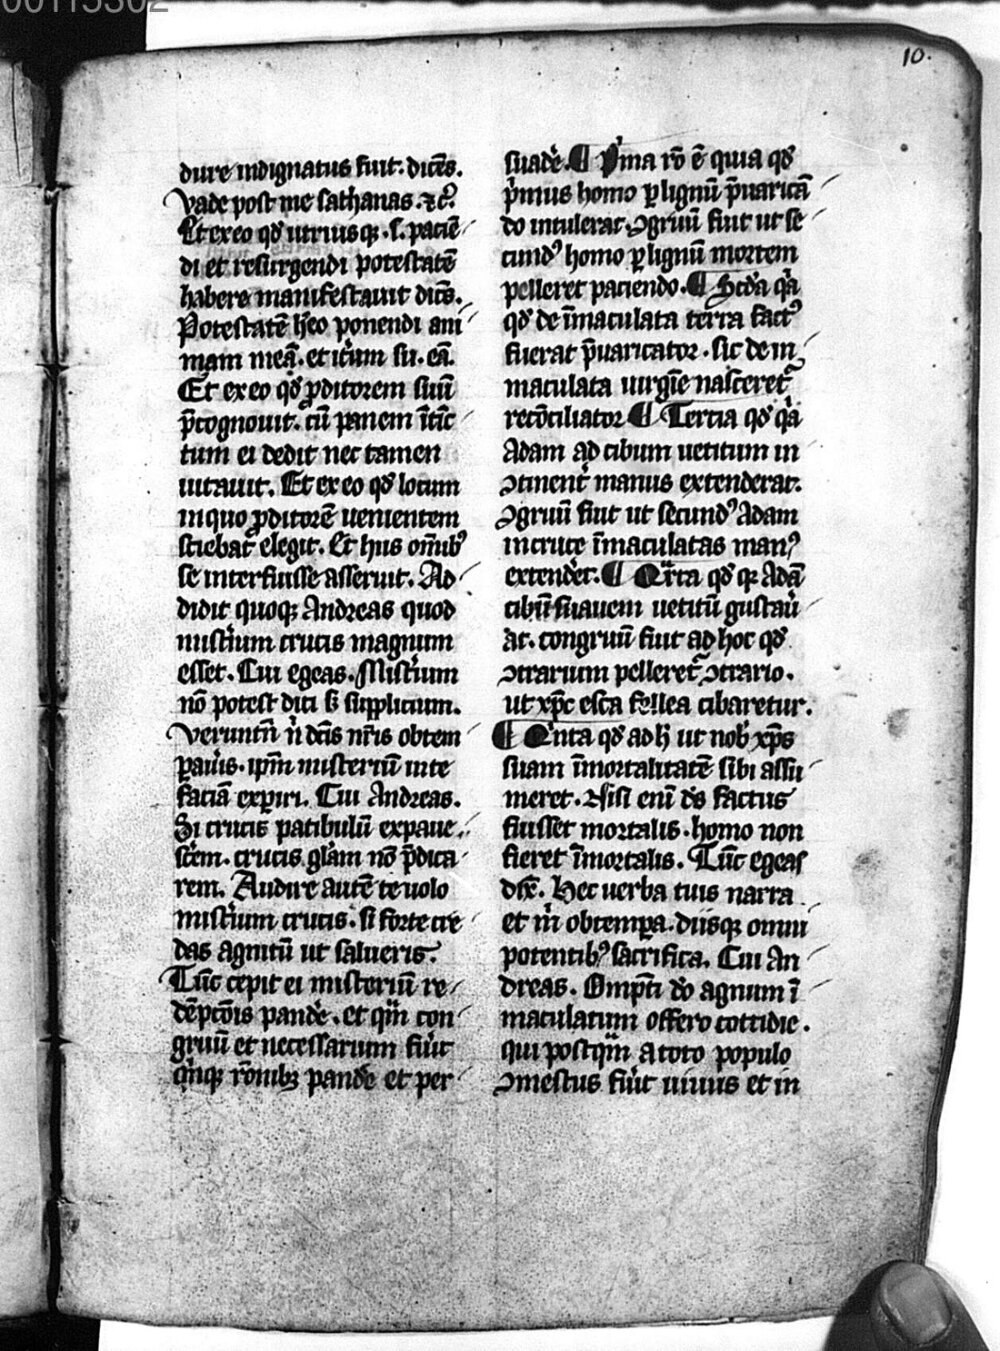 00115302
10.
dure indignatus fuit. dicēs.
Vade post me sathanas. ⁊c̄.
Et ex eo qđ utriusqꝫ .s. pacie͞
di et resurgendi potestatē
habere manifestauit dicēs.
Potestatē h̄eo ponendi ani
mam meā. et it̄um su. eā.
Et ex eo qđ ꝓditorem suū
p̄cognouit. cū panem ītīc
tum ei dedit nec tamen
uitauit. Et ex eo qđ locum
in quo ꝓditorē uenientem
sciebat elegit. Et hiis om̄ibꝰ
se interfuisse asseruit. Ad
didit quoqꝫ Andreas quod
mist̄ium crucis magnum
esset. Cui egeas. Mist̄ium
nō potest dici s̄ supplicium.
Verumtn̄ n̄ dc̄is nr̄is obtem
ꝑau̾is. ip̄m misteriū in te
faciā exꝑiri. Cui Andreas.
Si crucis patibulū expaue
sc̄em. crucis glām nō p̄dica
rem. Audire autē te uolo
mist̄ium crucis. si forte cre
das agnitū ut salueris.
Tūc cepit ei misteriū re
dēpcōis pande̾. et qm̄ con
gruū et necessarium fu̾it
qīnqꝫ rōnibꝫ pande̾ et per
suade̾. ¶ Pͥma rō ē quia qđ
pͥmus homo ꝑ lignū p̄uaricā
do intulerat ꝯgruū fuit ut se
cundꝰ homo ꝑ lignū mortem
pelleret paciendo. ¶ Scđa qͥa
qđ de īmaculata terra factꝰ
fuerat p̄uaricator. sic de in
maculata uirgīe nasceret᷑
recōciliator ¶ Tercia qđ qͥa
Adam ad cibum uetitum in
ꝯtinent̄ manus extenderat.
ꝯgruū fuit ut secundꝰ Adam
in cruce īmaculatas manꝰ
extende̾t. ¶ Qͣrta qđ qꝫ Adā
cibū suauem uetitū gustau̾
at. congruū fuit ad hoc qđ
ꝯtrarium pelleret᷑ ꝯtrario.
ut xp̄c esca fellea cibaretur.
¶ Qͥnta qđ ad h̄ ut nob̄ xp̄s
suam īmortalitatē sibi assu
meret. Nisi eni͞ ds̄ factus
fuisset mortalis. homo non
fieret īmortalis. Tūc egeas
dix̄. Hec uerba tuis narra
et m̄ obtempera. diisqꝫ omni
potentibꝰ sacrifica. Cui An
dreas. Omp̄ti do agnum ī
maculatum offero cottidie.
qui postqm̄ a toto populo
ꝯmestus fu̾it uiuus et in